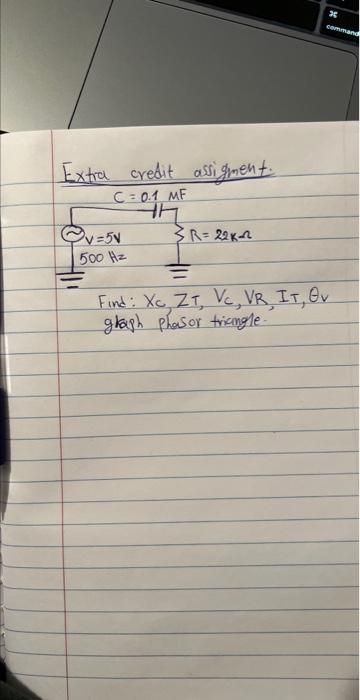 ⌘
command
Extra credit assigment.
C = 0.1 MF
V=5V
R= 22KΩ
500 Hz
Find: Xc, ZT, Vc, VR, IT, θv
graph phasor triangle.